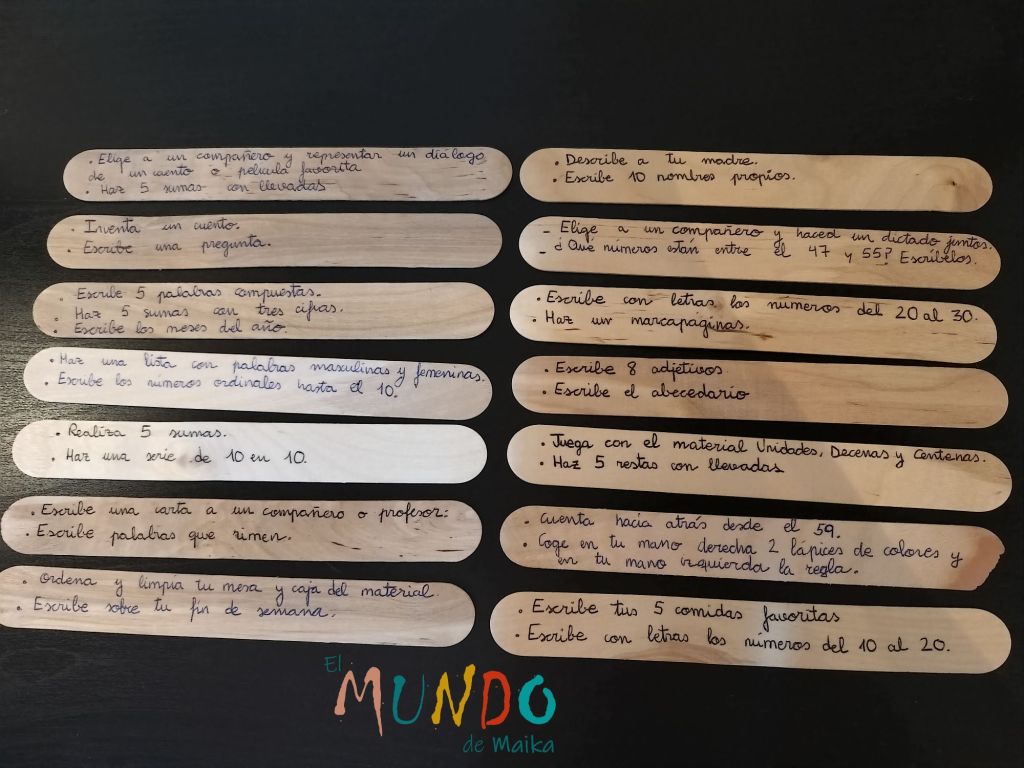 . Elige a un compañero y representar un diálogo
de un cuento o película favorita
. Haz 5 sumas con llevadas
. Inventa un cuento.
. Escribe una pregunta.
. Escribe 5 palabras compuestas.
. Haz 5 sumas con tres cifras.
. Escribe los meses del año.
. Haz una lista con palabras masculinas y femeninas.
. Escribe los números ordinales hasta el 10.
. Realiza 5 sumas.
. Haz una serie de 10 en 10.
. Escribe una carta a un compañero o profesor.
. Escribe palabras que rimen.
. Ordena y limpia tu mesa y caja del material.
. Escribe sobre tu fin de semana.
. Describe a tu madre.
. Escribe 10 nombres propios.
- Elige a un compañero y haced un dictado juntos.
- ¿Qué números están entre el 47 y 55? Escríbelos.
. Escribe con letras los números del 20 al 30.
. Haz un marcapáginas.
. Escribe 8 adjetivos
. Escribe el abecedario
. Juega con el material Unidades, Decenas y Centenas.
. Haz 5 restas con llevadas
. Cuenta hacia atrás desde el 59.
. Coge en tu mano derecha 2 lápices de colores y
en tu mano izquierda la regla.
. Escribe tus 5 comidas favoritas
. Escribe con letras los números del 10 al 20.
El
MUNDO
de Maika